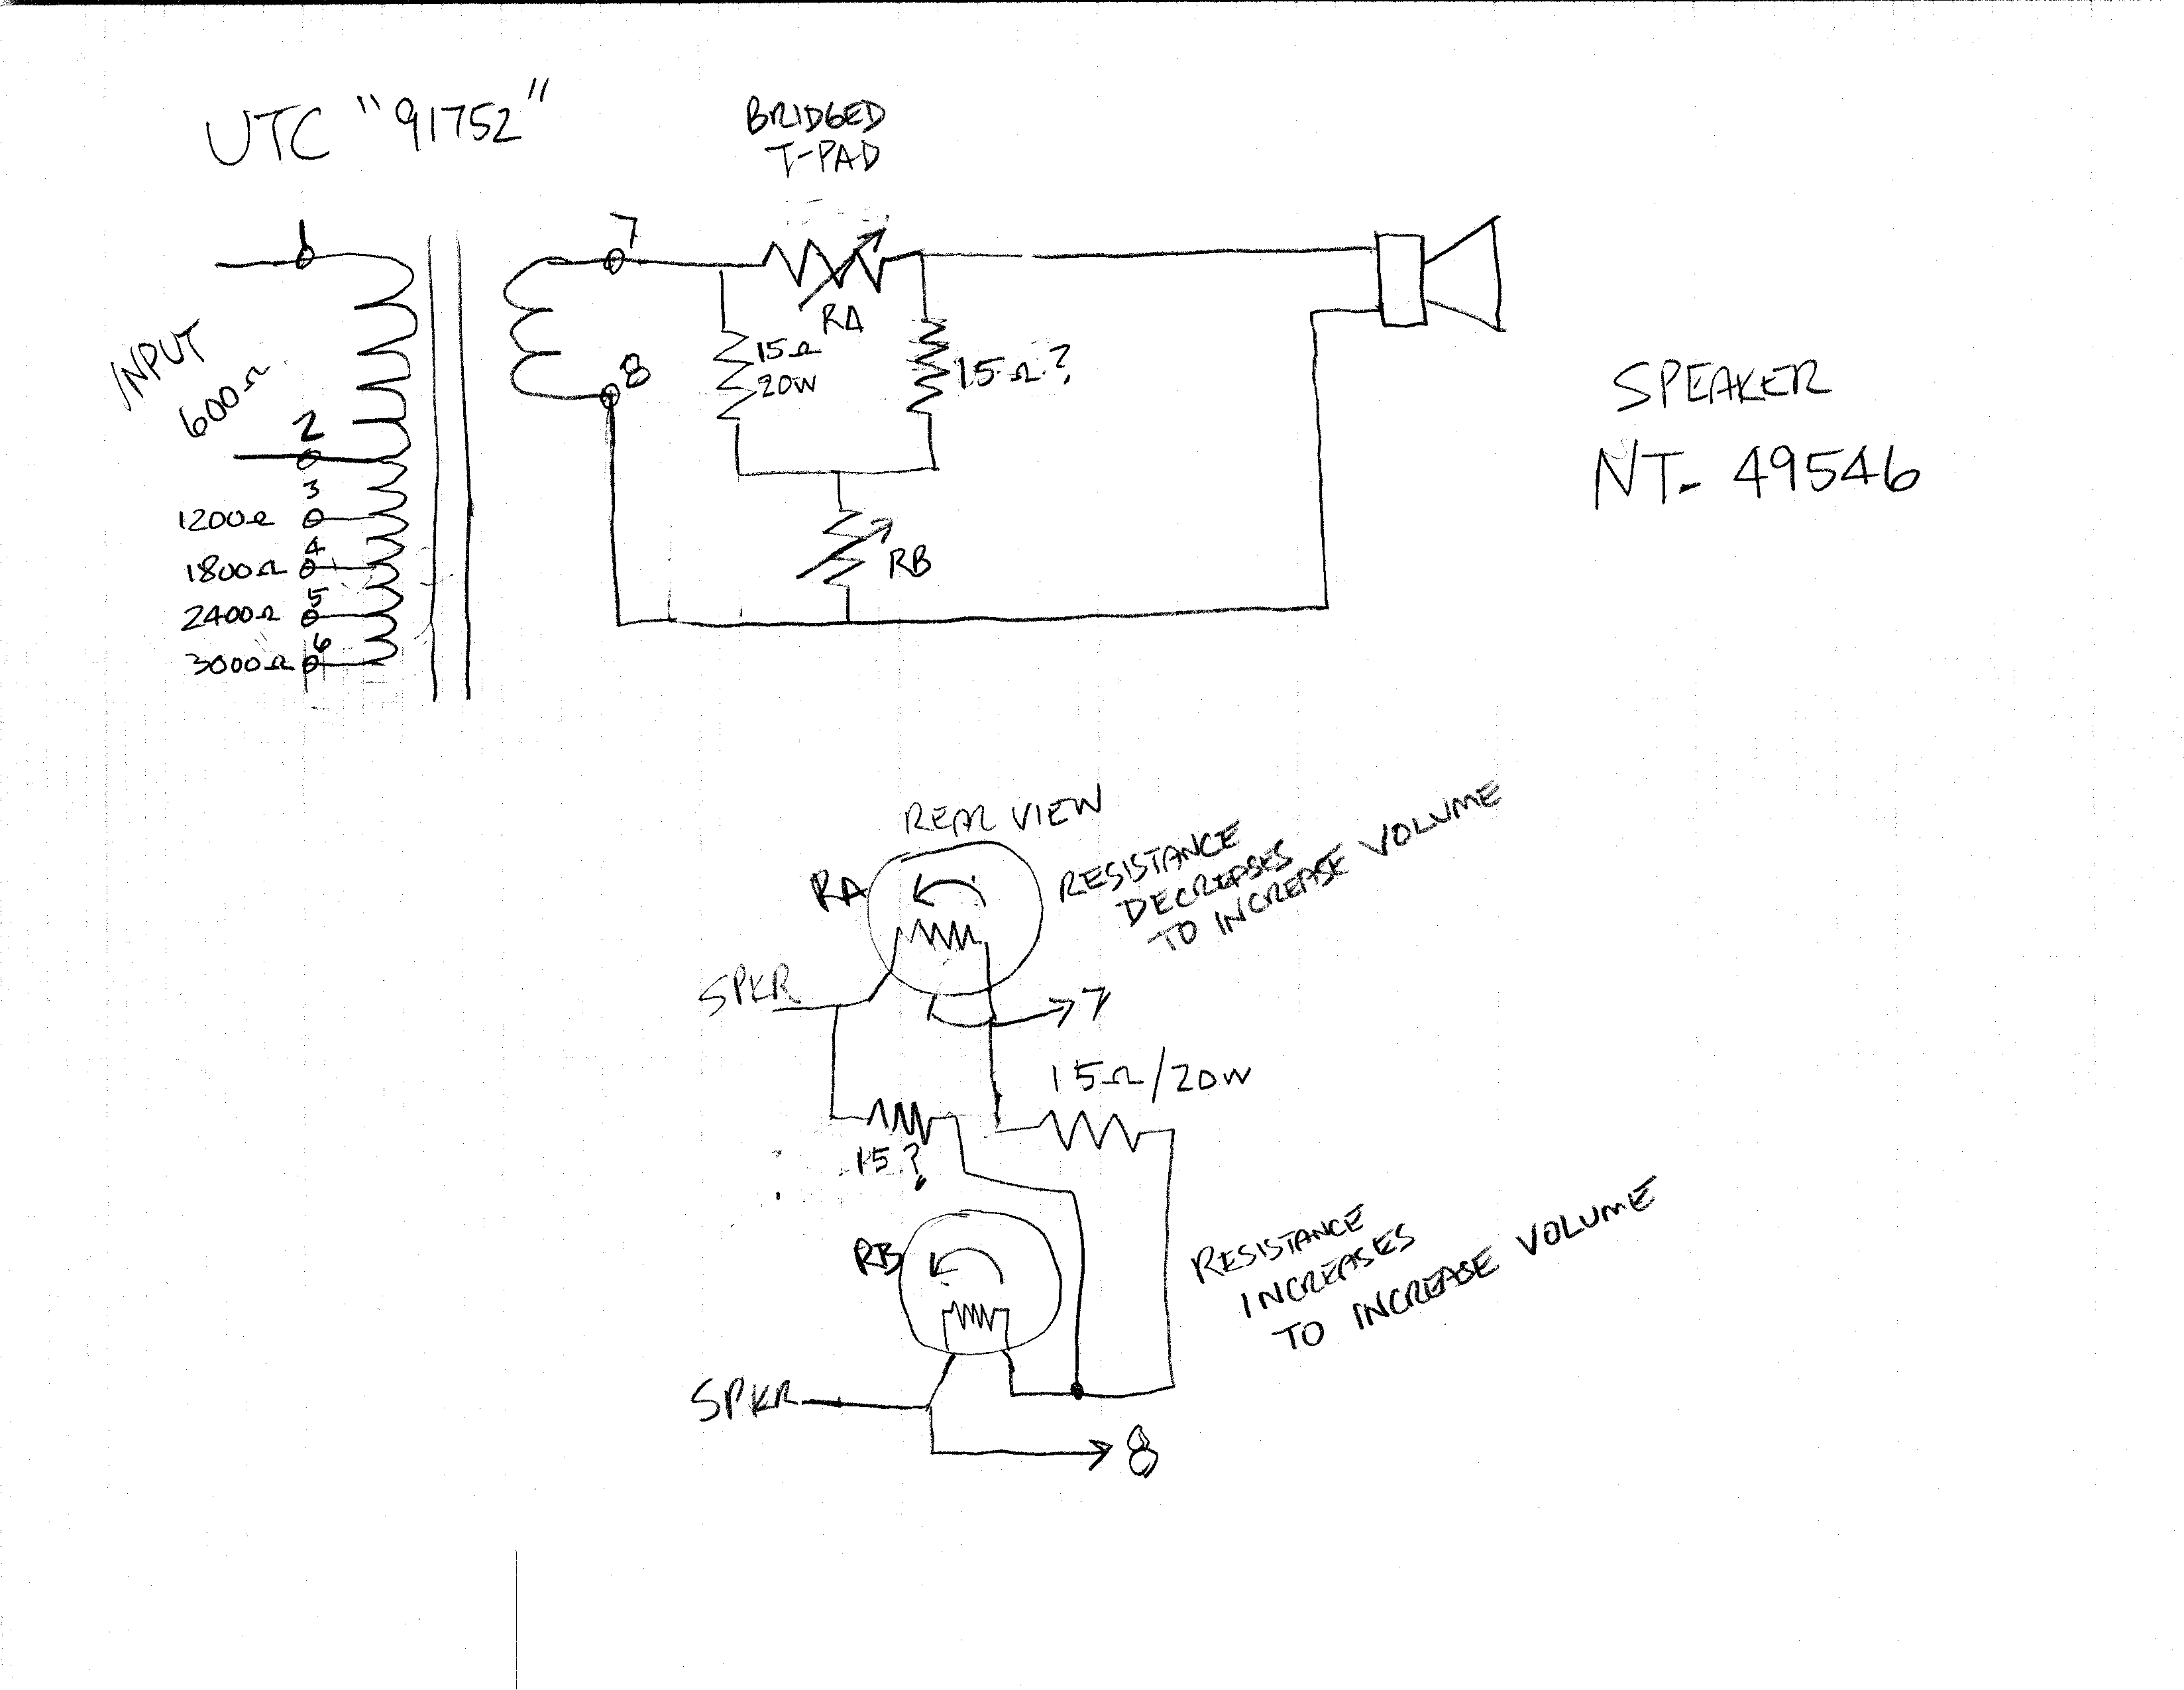 UTC "91752"
BRIDGED
T-PAD
1
7
INPUT
600Ω
RA
15Ω
20W
15Ω?
8
2
SPEAKER
NT-49546
3
1200Ω
4
1800Ω
RB
5
2400Ω
6
3000Ω
REAR VIEW
RA
RESISTANCE
DECREASES
TO INCREASE VOLUME
SPKR
7
15Ω/20W
15?
RB
RESISTANCE
INCREASES
TO INCREASE VOLUME
SPKR
8